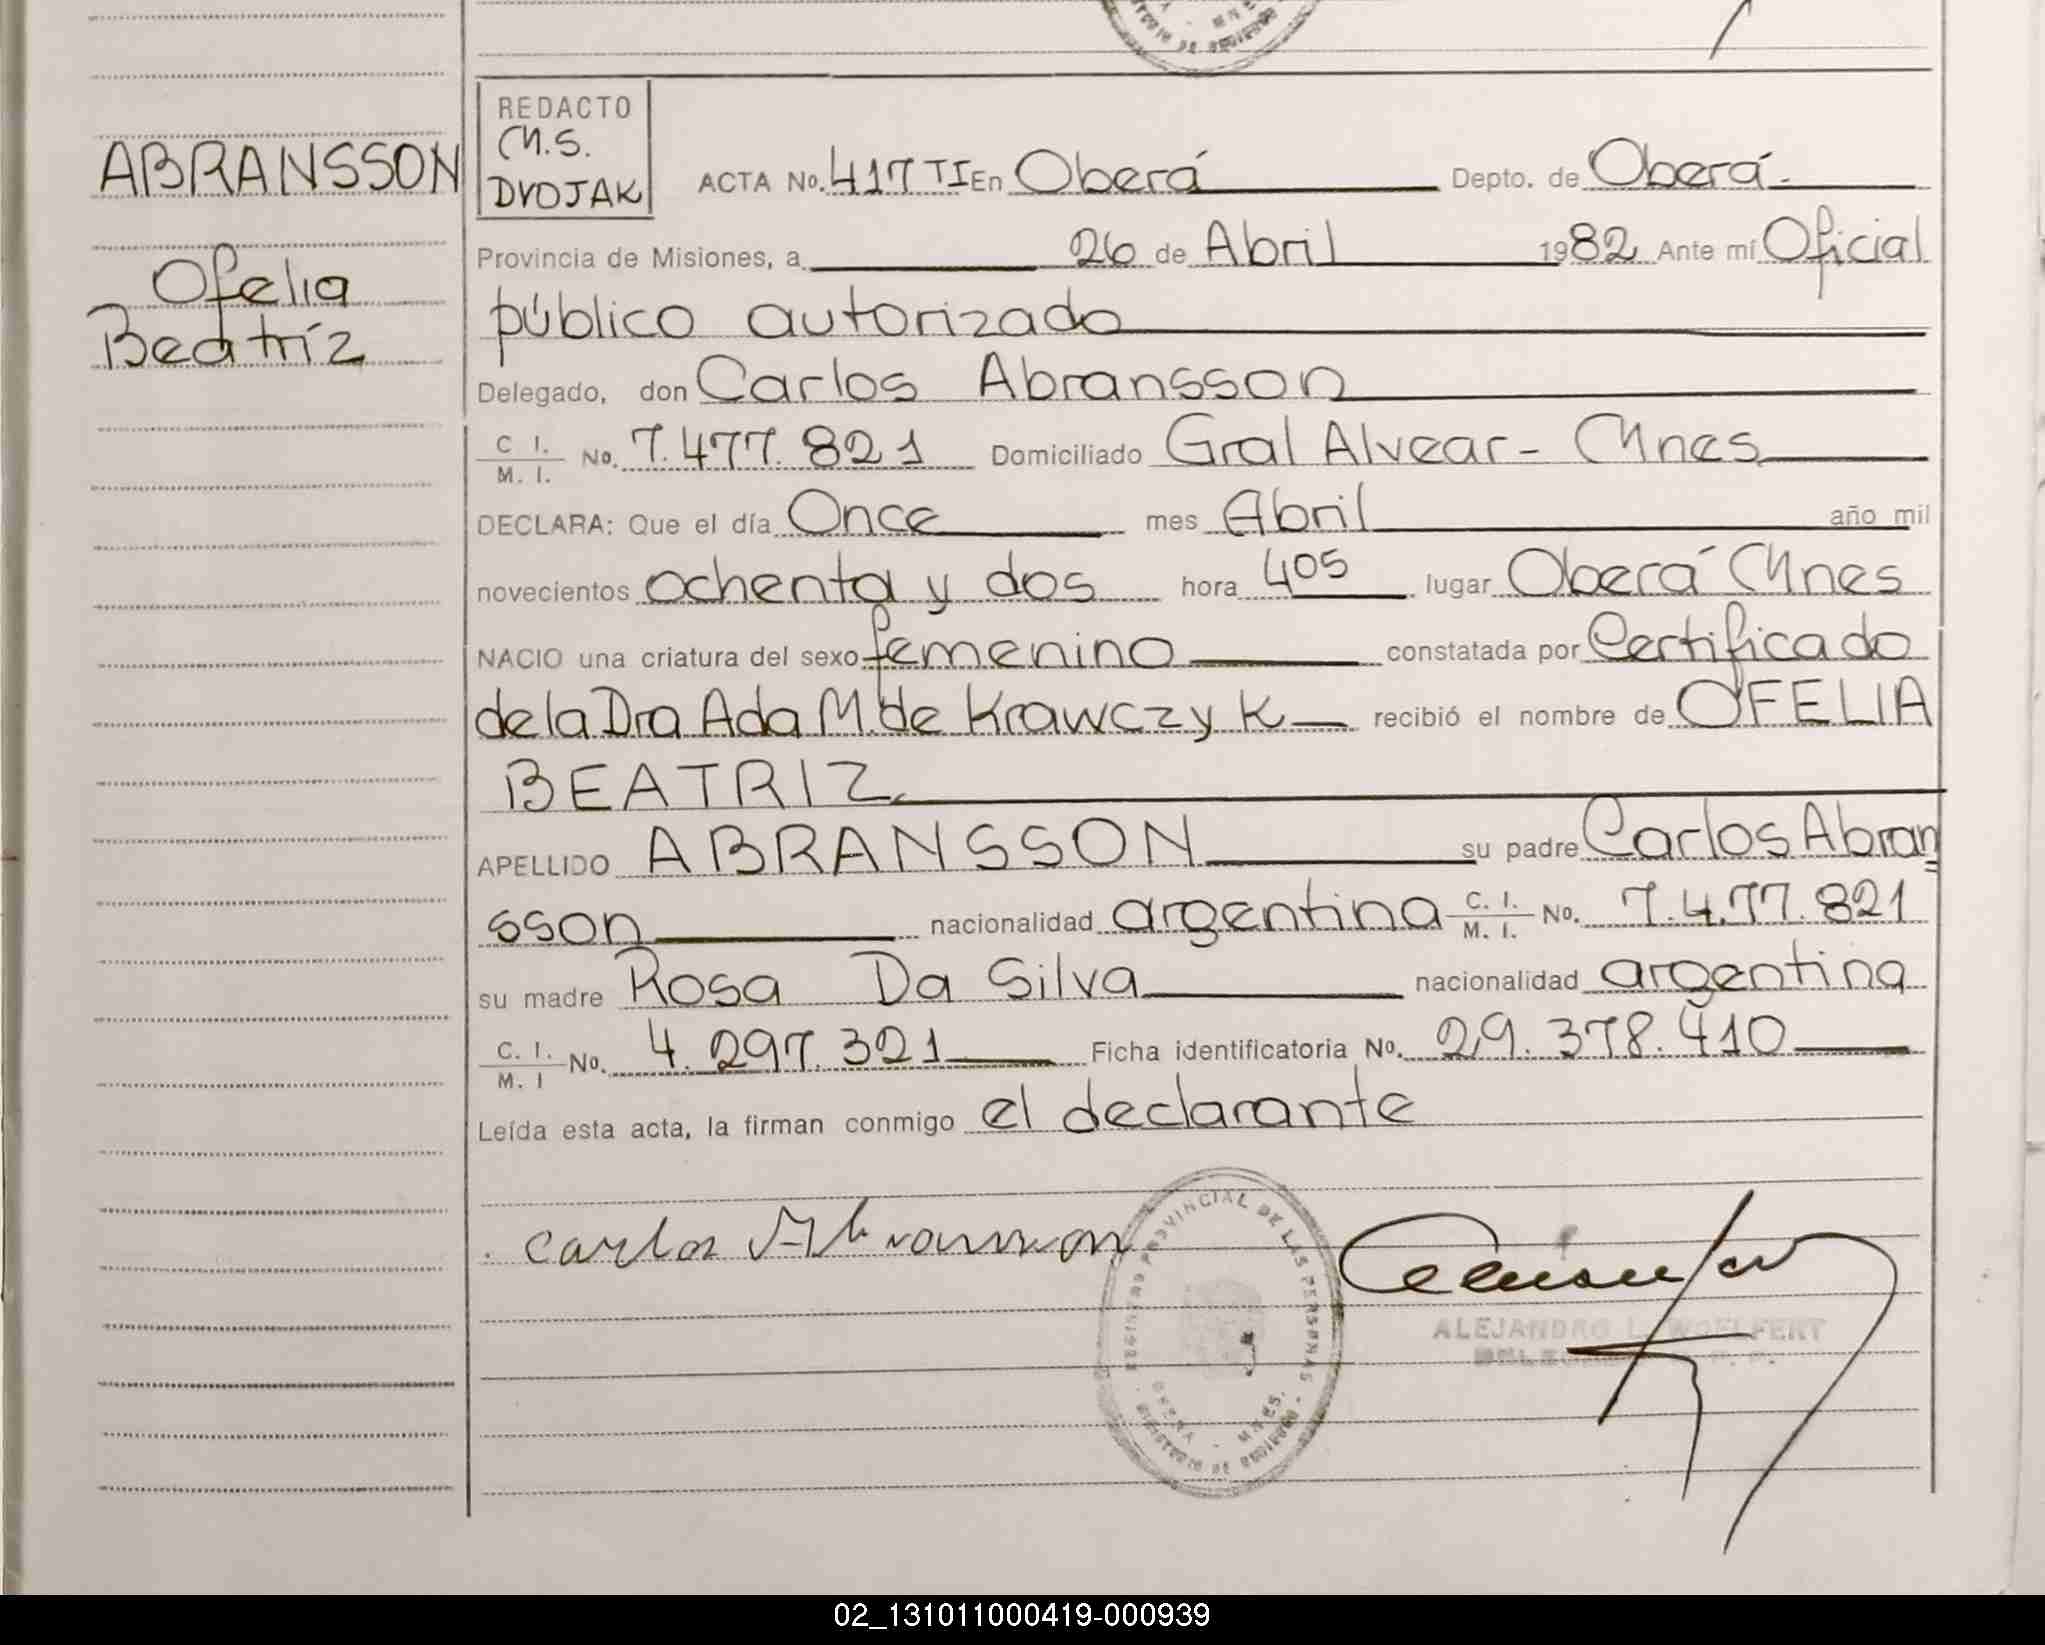 REDACTO
M.S.
DVOJAK
ABRANSSON
Ofelia
Beatríz
ACTA No. 417 TI En Oberá Depto. de Oberá.
Provincia de Misiones, a 26 de Abril 1982 Ante mí Oficial
público autorizado
Delegado, don Carlos Abransson
C I. / M. I. No. 7.477.821 Domiciliado Gral Alvear - Mnes
DECLARA: Que el día Once mes Abril año mil
novecientos ochenta y dos hora 4 05 lugar Oberá Mnes
NACIO una criatura del sexo femenino constatada por Certificado
de la Dra Ada M. de Krawczyk recibió el nombre de OFELIA
BEATRIZ
APELLIDO ABRANSSON su padre Carlos Abran
sson nacionalidad argentina C. I. / M. I. No. 7.477.821
su madre Rosa Da Silva nacionalidad argentina
C. I. / M. I No. 4.297.321 Ficha identificatoria No. 29.378.410
Leída esta acta, la firman conmigo el declarante
Carlos Abransson
REGISTRO PROVINCIAL DE LAS PERSONAS
OBERA - MNES.
ALEJANDRO L. WOELFERT
02_131011000419-000939